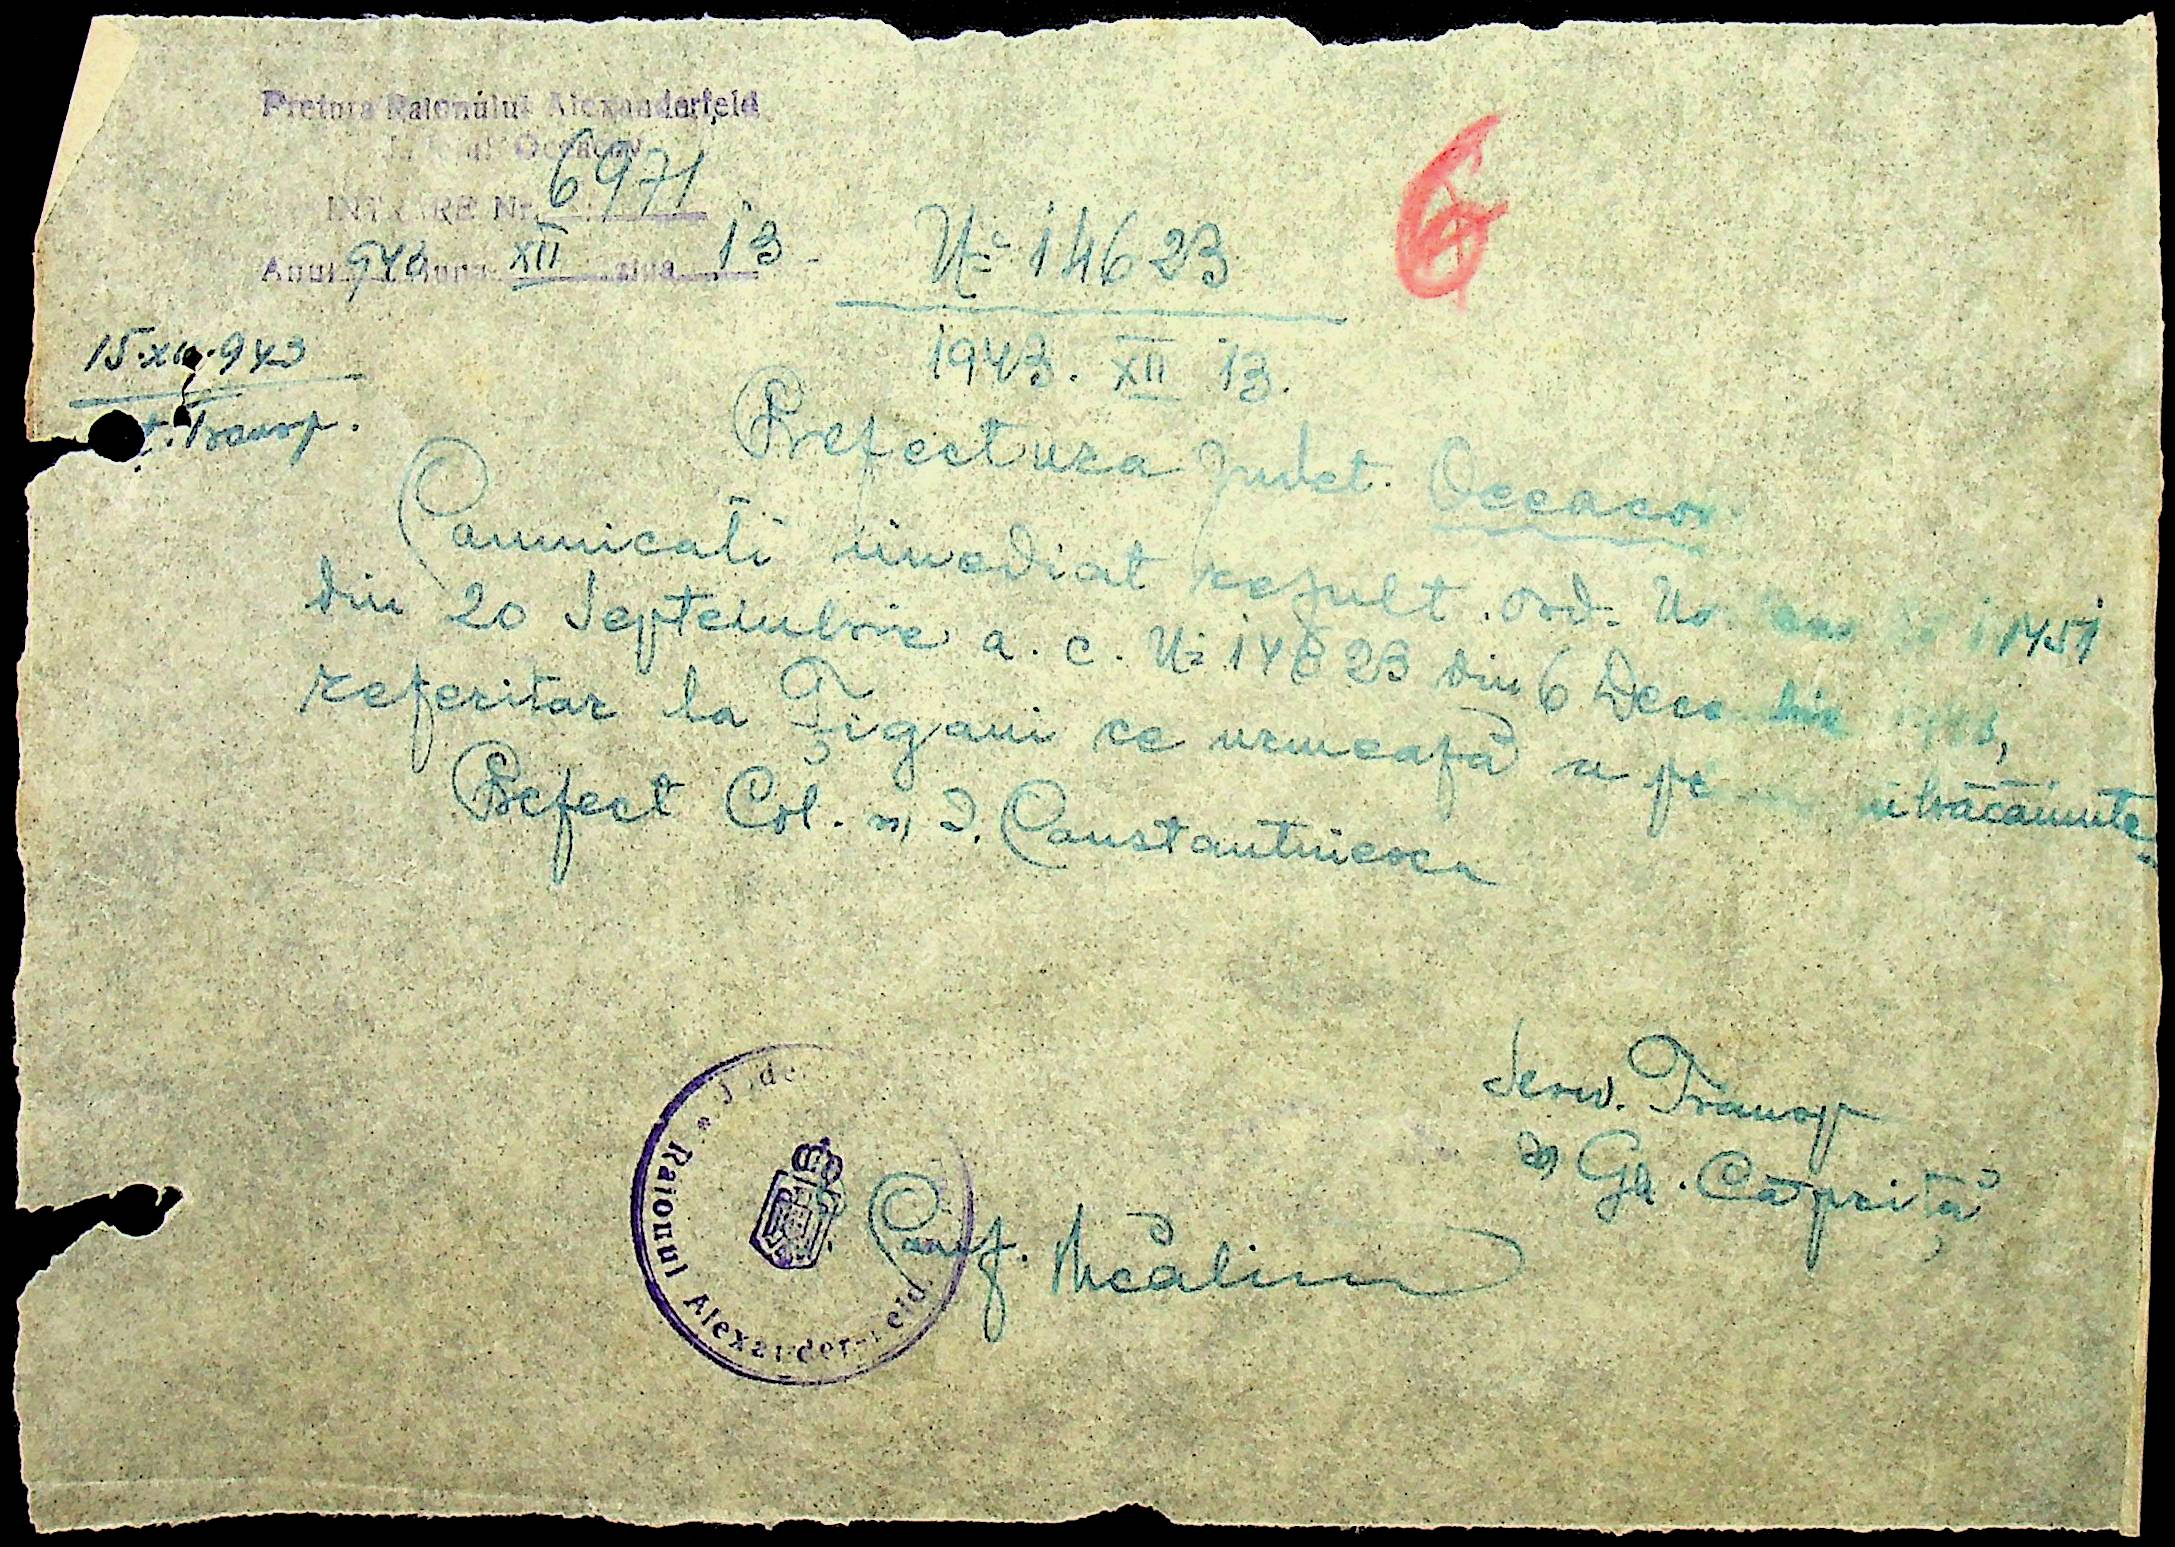 Pretura Raionului Alexanderfeld
INTRARE Nr. 6971
Anul 943 luna XII ziua 13
6
Nº 14623
1943. XII 13.
15.XII.943
Transp.
Prefectura Judet. Oceacov
Comunicati imediat rezult. ord. No 11451
din 20 Septembrie a. c. Nº 14823 din 6 Decembrie
referitor la Țigani ce urmează a îmbrăcăminte
Prefect Col. ss I. Constantinescu
Serv. Transp
ss Gh. Căpriță
Conf.
Raionul Alexander-feld